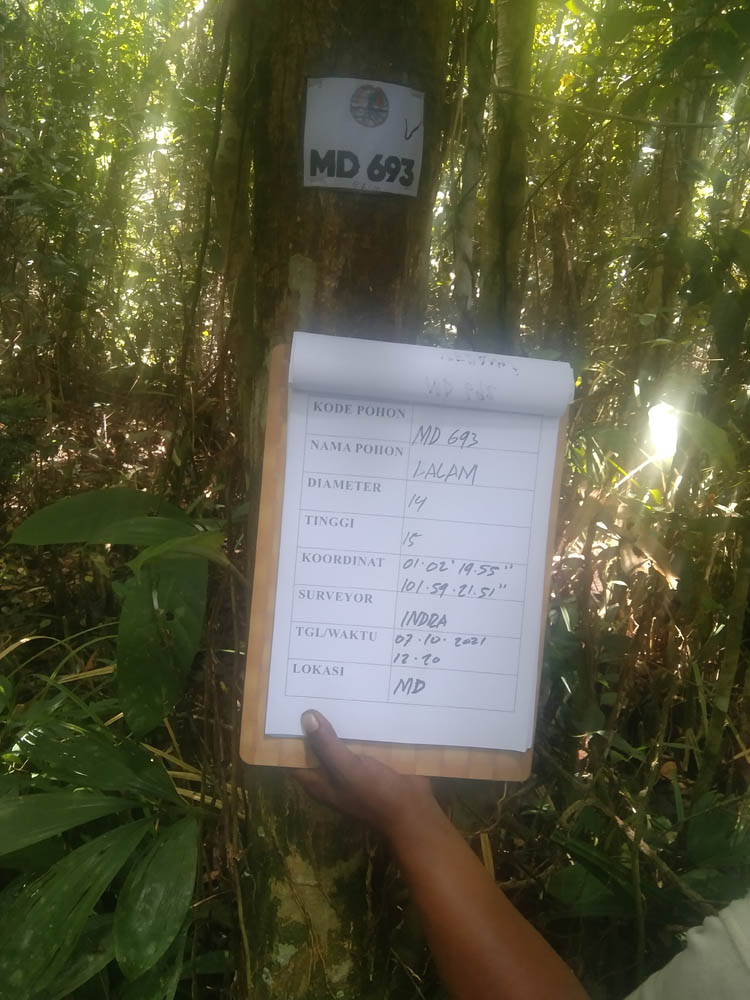 MD 693
KODE POHON MD 693
NAMA POHON LALAM
DIAMETER 14
TINGGI 15
KOORDINAT 01.02' 19.55"
101.59.21.51"
SURVEYOR INDRA
TGL/WAKTU 07.10.2021
12.20
LOKASI MD